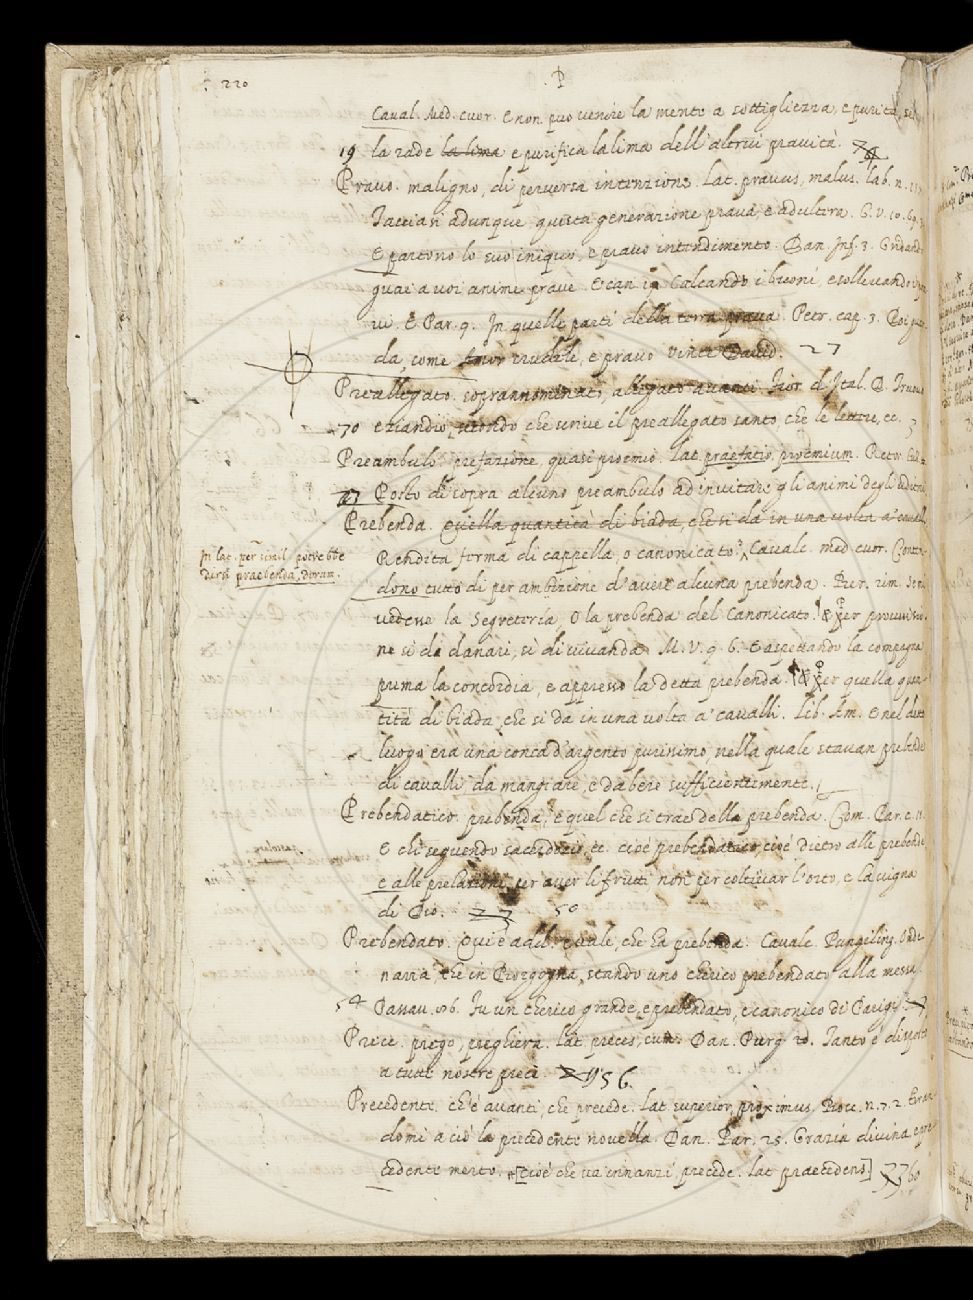 220
P
Caval. Med. cuor. E non può venire la mente a sottigliezza, e purità, se
19 la rade la lima e purifica la lima dell'altrui pravità.
Pravo. maligno, di perversa intenzione. Lat. pravus, malus. Lab. n.
Facciasi adunque questa generazione prava, e adultera. G. V. 10. 69.
E partorio lo suo iniquo, e pravo intendimento. Dan. Inf. 3. Gridando
guai a voi anime prave. E can. Calcando i buoni, e sollevando i pra
vi. E Par. 9. In quelle parti della terra prava. Petr. cap. 3. Poi guar
da, come Amor crudele, e pravo vince David. 27
Preallegato. soprannominato, allegato avanti. Fior. d'Ital. D.
70 eziandio, secondo che scrive il preallegato santo, che le lettere, ec. 3
Preambulo. prefazione, quasi proemio. Lat. praefatio, proemium. Retor.
Posto di sopra alcuno preambulo ad invitare gli animi degli uditori
Prebenda. Quella quantità di biada, che si da in una volta a' cavalli
In lat. per simil. potrebbe
dirsi praebenda, orum.
Rendita ferma di cappella, o canonicato. Cavalc. med. cuor.
dono tutto di per ambizione d'avere alcuna prebenda. Bur. rim. Se
vedesse la Segreteria, O la prebenda del Canonicato. & Per provvisio
ne sì di danari, sì di vivanda. M. V. 9. 6. E aspettando la compagna
prima la concordia, e appresso la detta prebenda. & Per quella quan
tità di biada, che si da in una volta a' cavalli. Lib. Am. E nel detto
luogo era una conca d'argento purissimo, nella quale stavan prebende
di cavalli da mangiare, e da bere sufficientemente.
Prebendatico. prebenda, e quel che si trae della prebenda. Com. Par. c. 11.
E chi seguendo sacerdozio, ec. cioè prebendatico, cioè dietro alle prebende,
e alle prelazioni, per aver li frutti non per coltivar l'orto, e la vigna
di Dio. 27 50
Prebendato. Quì è add. e vale, che ha prebenda. Cavalc. Pungiling. Onde
narra, che in Borgogna, stando uno cherico prebendato alla messa
54 Passav. 106. Fu un cherico grande, e prebendato, e canonico di Parigi.
Prece. prego, preghiera. Lat. preces, cum. Dan. Purg. 20. Tanto è disposto
a tutte nostre prece. 56
Precedente. ch'è avanti, che precede. Lat. superior, proximus. Bocc. n. 7. 2.
domi a ciò la precedente novella. Dan. Par. 25. Grazia divina, e pre
cedente merto. [cioè che va innanzi precede. lat. praecedens.] 60